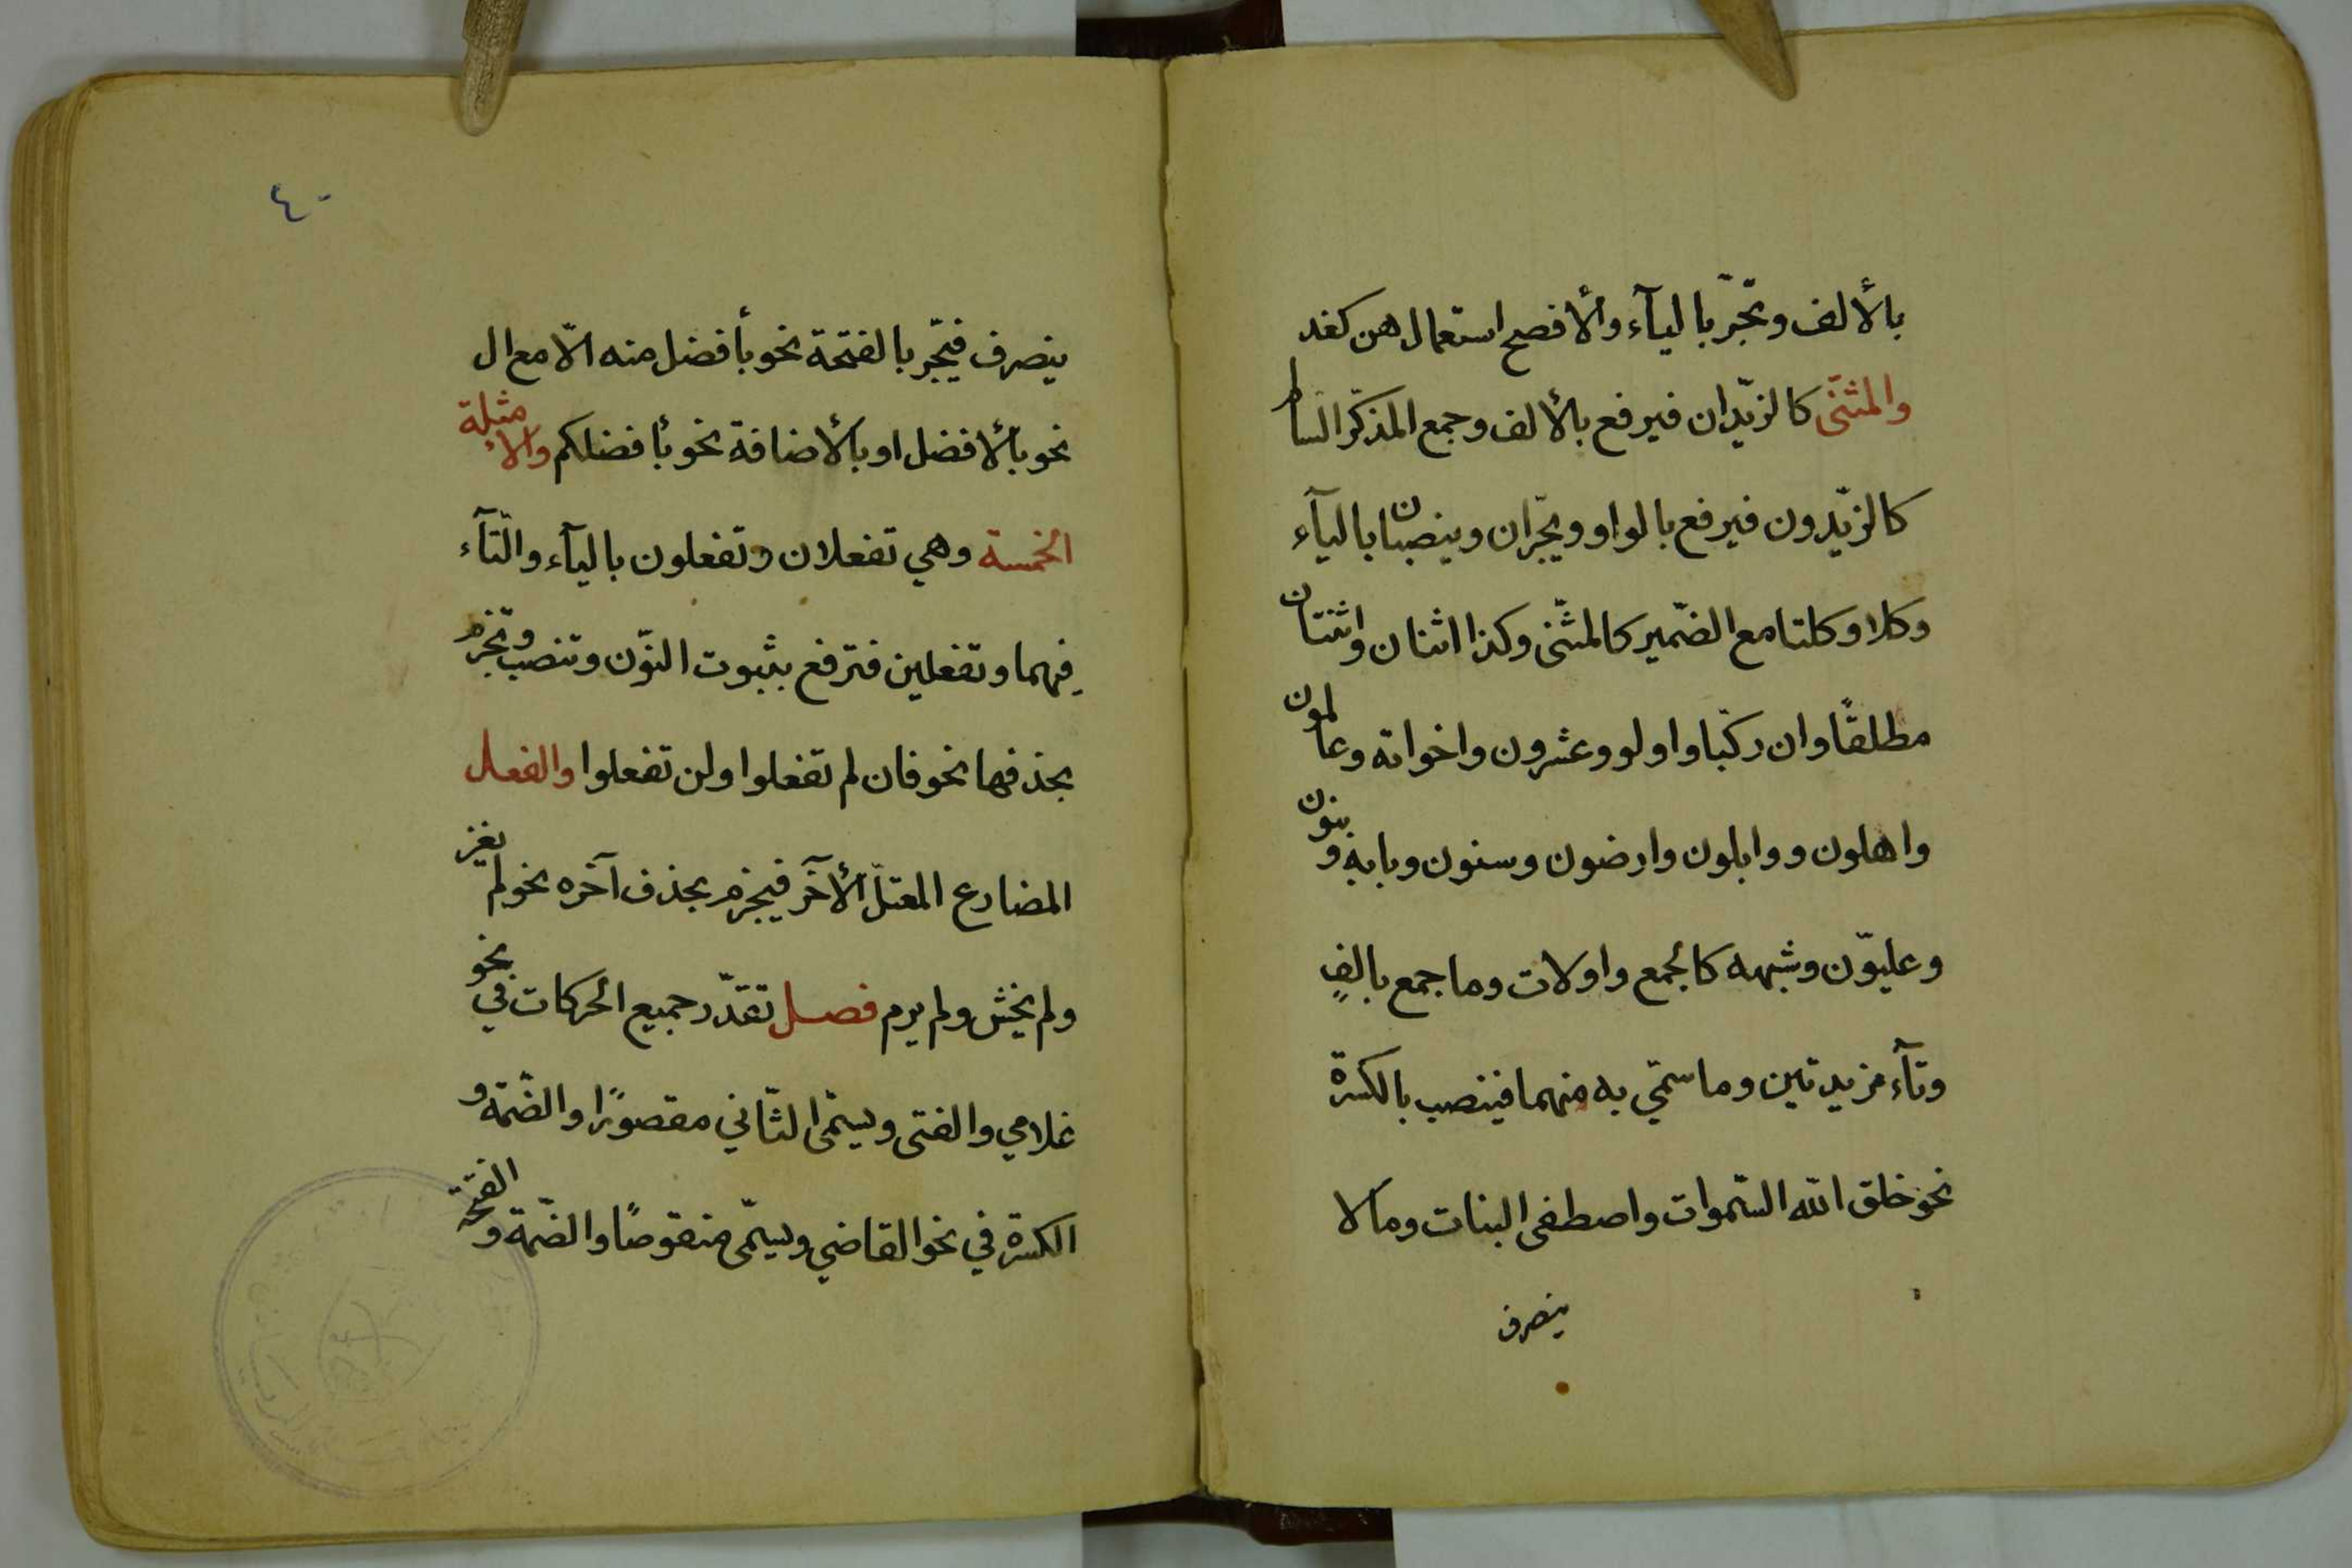 بالألف وتجّر بالياۤء والأفصح استعمال هن كغد
والمثنَى كالزيّدان فيرفع بالألف وجمع المذكّر السالم
كالزيّدون فيرفع بالواو ويجّران وينصبان بالياۤء
وكلا وكلتا مع الضّمير كالمثّنى وكذا اثنان واثنتان
مطلقًا وان ركّبا واولو وعشرون واخواته وعالمون
واهلون ووابلون وارضون وسنون وبابه وبنون
وعليوّن وشبهه كالجمع واولات وما جمع بالفٍ
وتاۤء مزيدتين وما سمّي به منهما فينصب بالكسرة
نحو خلق الله السّموات واصطفى البنات وما لا
ينصرف
٤٠
ينصرف فيجّر بالفتحة نحو بأفضل منه الاّ مع ال
نحو بالأفضل او بالأضافة نحو بأفضلكم والأمثلة
الخمسة وهي تفعلان وتفعلون بالياۤء والتّاۤء
فيهما وتفعلين فترفع بثبوت النوّن وتنصب وتجزم
بحذفها نحو فان لم تفعلوا ولن تفعلوا والفعل
المضارع المعتلّ الأآخر فيجزم بحذف آخره نحو لم يغز
ولم يخش ولم يرم فصل تقدّر جميع الحركات في نحو
غلامي والفتى ويسمّى الثّاني مقصورًا والضّمة و
الكسرة في نحو القاضي ويسمّى منقوصًا والضّمة والفتحة